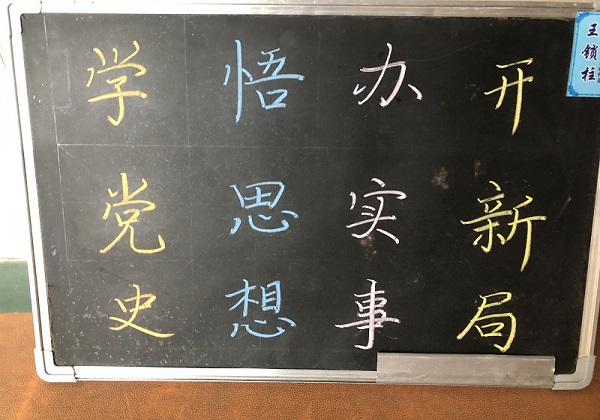 学党史
悟思想
办实事
开新局
王锁柱